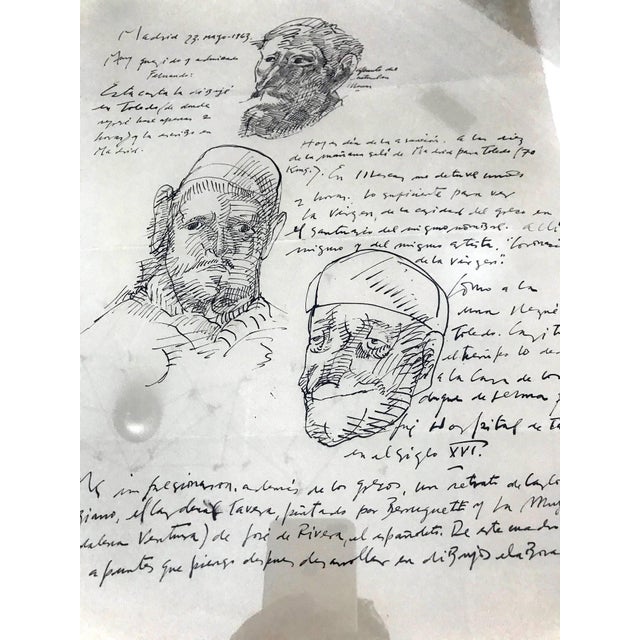 Madrid 23. mayo-1963
Muy querido y admirado
Fernando:
Esta carta la dibujé
en Toledo (de donde
regresé hace apenas 2
horas) y la escribo en
Madrid.
apunte del
Hoy es día de la asunción. A las diez
de la mañana salí de Madrid para Toledo (70
Kmg.). En Illescas me detuve unos
2 horas. Lo suficiente para ver
la Virgen de la caridad del greco en
el santuario del mismo nombre. Allí
mismo y del mismo artista, "Coronación
de la virgen".
Como a la
una llegué
Toledo.
el tiempo lo de
a la Casa de los
duque de Lerma y
fué Hospital de Ta
en el siglo XVI.
Me impresionaron, además de los grecos, un retrato de
el cardenal Tavera, pintado por Berruguete y La Muj
dalena Ventura) de José de Rivera, el españoleto. De este cuadro
apuntes que pienso después desarrollar en dibujos elabora